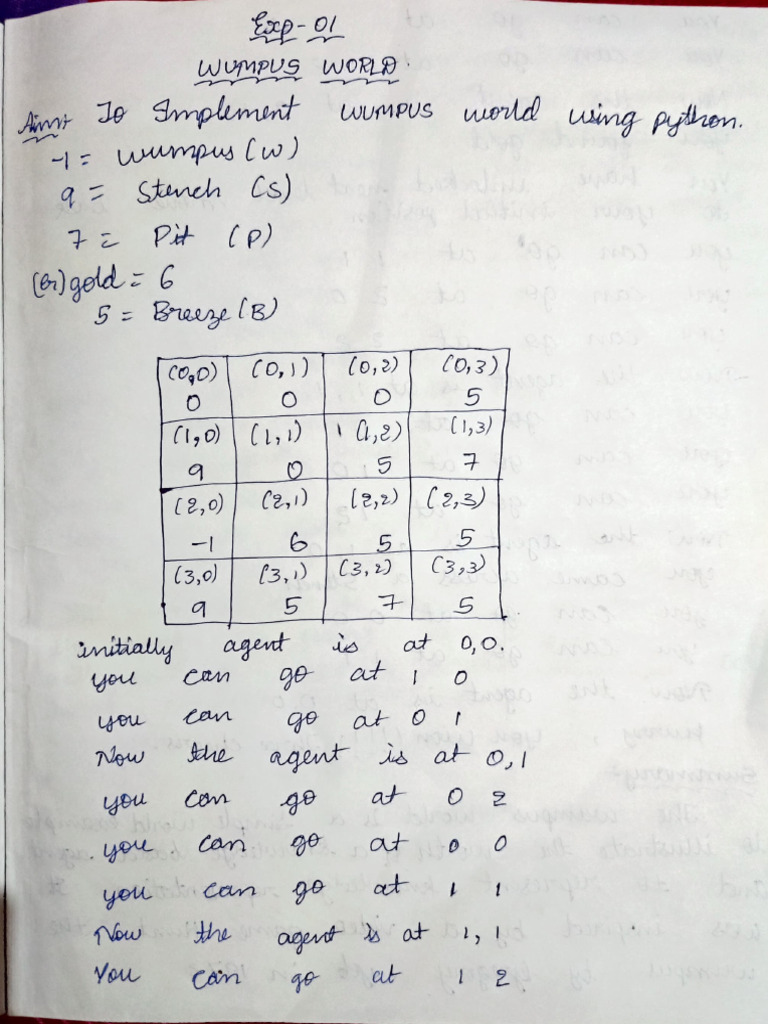 Exp-01
WUMPUS WORLD.
Aim:- To Implement WUMPUS world using python.
-1 = Wumpus (W)
9 = Stench (S)
7 = Pit (P)
(Gr) gold = 6
5 = Breeze (B)
(0,0) (0,1) (0,2) (0,3)
0 0 0 5
(1,0) (1,1) (1,2) (1,3)
9 0 5 7
(2,0) (2,1) (2,2) (2,3)
-1 6 5 5
(3,0) (3,1) (3,2) (3,3)
9 5 7 5
initially agent is at 0,0.
you can go at 1 0
you can go at 0 1
Now the agent is at 0,1
you can go at 0 2
you can go at 0 0
you can go at 1 1
Now the agent is at 1,1
You can go at 1 2